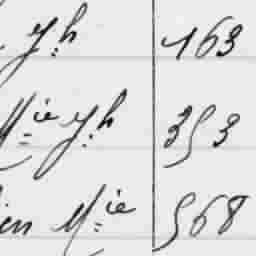 Jh 163
Mie Jh 353
ien Mie 568